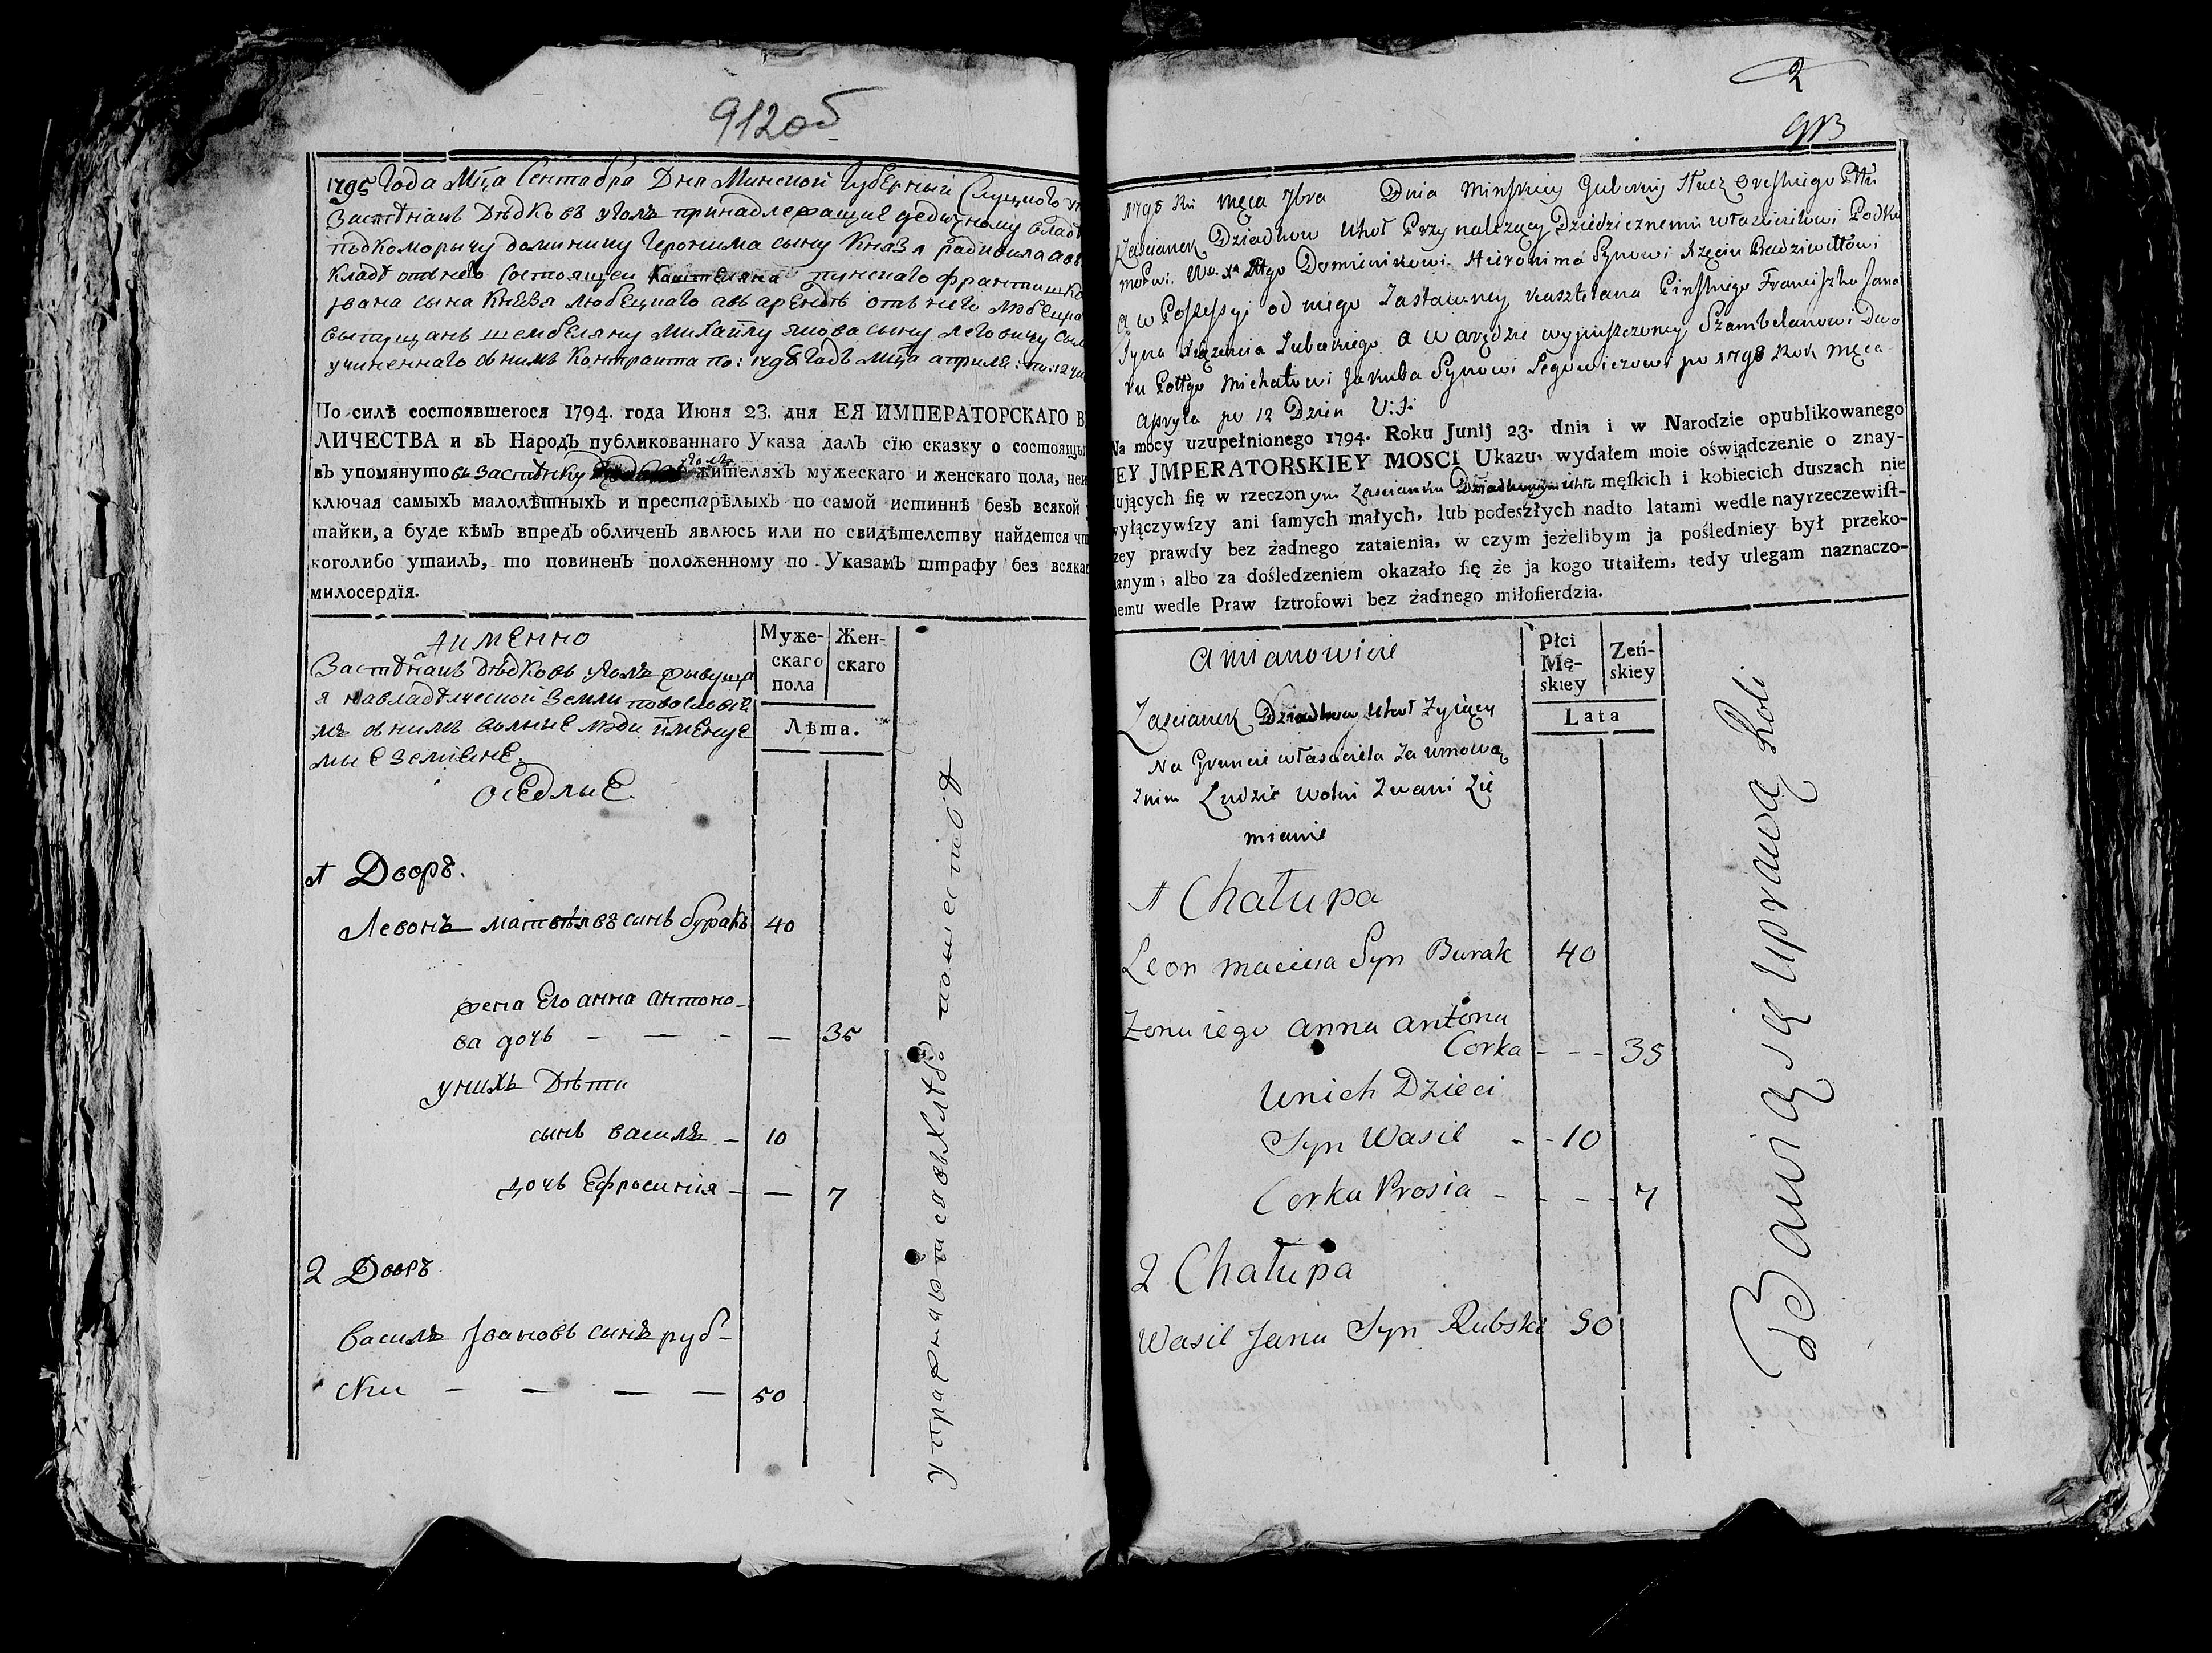 912об
1795 Года Мца Сентабра Дня Минской Губерный Слуцкого
Застѣнакъ Дѣдковъ уголъ принадлежащие дедичному
подкоморычу доминику Геронима сыну Князя радивила
Кладѣ отъ него Состоящей пинскаго францишка
Ивана сына Князя любецкаго авъ арендѣ отъ него
выпущанъ шембеляну Михайлу сыну леговичу
учиненнаго съ нимъ Контракта по: 1798 Годъ Мца априля: по: 12
По силѣ состоявшегося 1794. года Июня 23. дня ЕЯ ИМПЕРАТОРСКАГО В
ЛИЧЕСТВА и въ Народъ публикованнаго Указа далъ сїю сказку о состоящи
въ упомянуто въ застѣнку уголъ жителяхъ мужескаго и женскаго пола, неи
ключая самыхъ малолѣтныхъ и престарѣлыхъ по самой истиннѣ безъ всякой у
тайки, а буде кѣмъ впредъ обличенъ явлюсь или по свидѣтелству найдется чт
коголибо утаилъ, то повиненъ положенному по Указамъ штрафу без всякаг
милосердїя.
Аименно
Муже-скаго пола
Жен-скаго
Лѣта.
Застѣнакъ Дѣдковъ уголъ живущи
я навладѣлческой Земли
съ нимъ волные люди имѣнуе
мые земяне
осѣдлые
1 Дворъ.
Левонъ матвѣявъ сынъ буракъ 40
жена Его анна антоно-
ва дочь — — — — 35
у нихъ Дѣти
сынъ василь — 10
дочь Ефросиния — — 7
2 Дворъ
василь Ивановъ сынъ руб-
ски — — — — 50
упражняются въ хлебопашестве
2
913
1795 Ru Męca 7bra Dnia Minskiey Gubernij Słuczoreskiego Ptu
Zascianek Dziadkow Uhoł Przynalezący Dziedzicznemu własicielowi Podko
Dominikowi Hieronima Synowi Xzęciu Radziwiłłowi
a w Possessyi od niego Zastawney Kasztelana Pinskiego Franciszka Jana
Syna Xiązęcia Lubeckiego a w arędzie wypuszczoney Szambelanowi Dwo
ru Polłgo Michałowi Jakuba Synowi Legowiczowi po 1798 Rok Męca
Apryla po 12 Dzien V: S:
Na mocy uzupełnionego 1794. Roku Junij 23. dnia i w Narodzie opublikowanego
JEY JMPERATORSKIEY MOSCI Ukazu, wydałem moie oświądczenie o znay-
dujących ſię w rzeczonym Zascianku Dziadkowym Uhłu męſkich i kobiecich duszach nie
wyłączywſzy ani ſamych małych, lub podeszłych nadto latami wedle nayrzeczewiſt-
zey prawdy bez żadnego zataienia, w czym jeżelibym ja poſledniey był przeko-
nanym, albo za dośledzeniem okazało ſię że ja kogo utaiłem, tedy ulegam naznaczo-
nemu wedle Praw ſztrofowi bez żadnego miłoſierdzia.
Amianowicie
Płci Mę-skiey
Zeń-skiey
Lata
Zascianek Dziadkow Uhoł Zyiący
Na Gruncie własciciela Za umową
Znim Ludzie Wolni Zwani Zie
mianie
1 Chałupa
Leon Macieia Syn Burak 40
Zona iego Anna Antona
Corka - - - 35
Unich Dzieci
Syn Wasil - - 10
Corka Prosia - - - 7
2 Chałupa
Wasil Jana Syn Rubski 50
Bawią się uprawą Roli